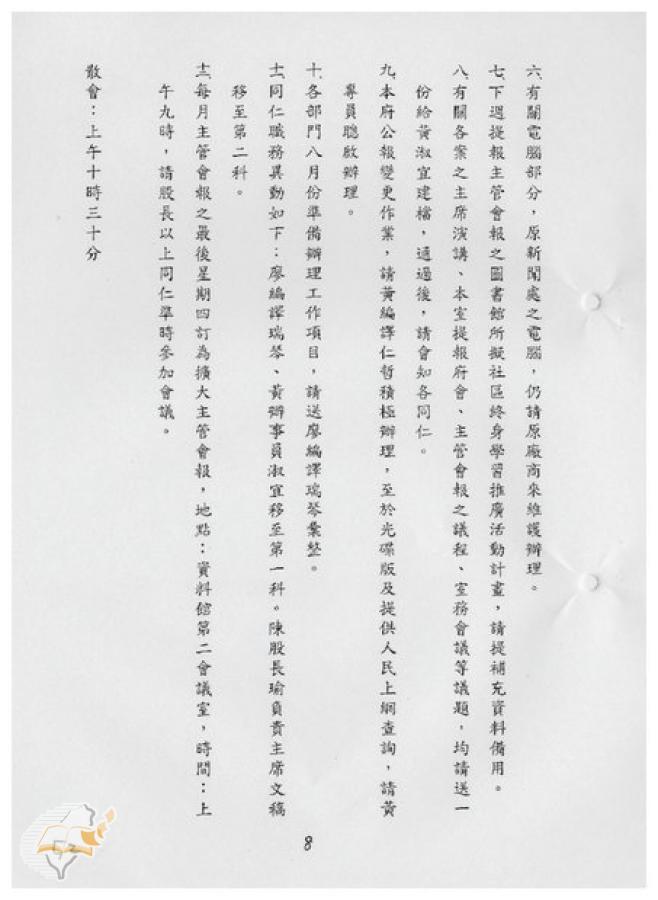 六、有關電腦部分，原新聞處之電腦，仍請原廠商來維護辦理。
七、下週提報主管會報之圖書館所擬社區終身學習推廣活動計畫，請提補充資料備用。
八、有關各案之主席演講、本室提報府會、主管會報之議程、室務會議等議題，均請送一
份給黃淑宜建檔，通過後，請會知各同仁。
九、本府公報變更作業，請黃編譯仁哲積極辦理，至於光碟版及提供人民上網查詢，請黃
專員聰啟辦理。
十、各部門八月份準備辦理工作項目，請送廖編譯瑞琴彙整。
十一、同仁職務異動如下：廖編譯瑞琴、黃辦事員淑宜移至第一科。陳股長瑜負責主席文稿
移至第二科。
十二、每月主管會報之最後星期四訂為擴大主管會報，地點：資料館第二會議室，時間：上
午九時，請股長以上同仁準時參加會議。
散會：上午十時三十分
8